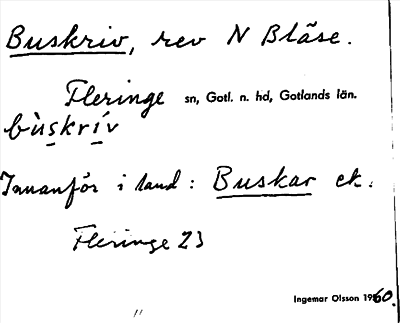 Buskriv, rev N Bläse.
Fleringe sn, Gotl. n. hd, Gotlands län.
bùskrív
Innanför i land: Buskar ek.
Fleringe 23
Ingemar Olsson 1960.